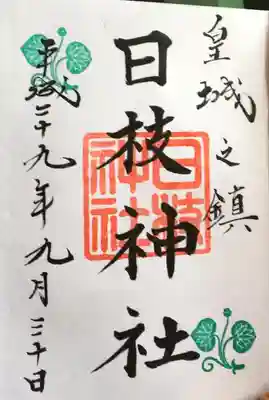 皇城之鎮
日枝神社
日枝神社
平成二十九年九月三十日